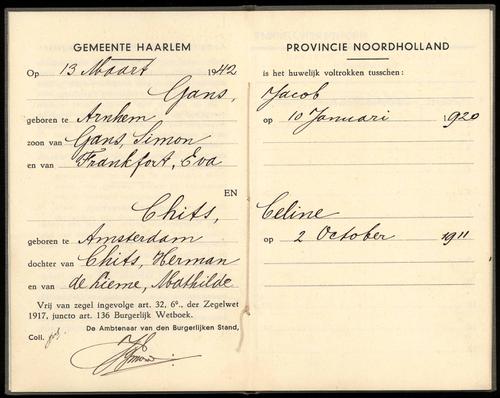 GEMEENTE HAARLEM
Op 13 Maart 1942
Gans,
geboren te Arnhem
zoon van Gans, Simon
en van Frankfort, Eva
EN
Chits,
geboren te Amsterdam
dochter van Chits, Herman
en van de Lieme, Mathilde
Vrij van zegel ingevolge art. 32, 6°., der Zegelwet
1917, juncto art. 136 Burgerlijk Wetboek.
De Ambtenaar van den Burgerlijken Stand,
Coll.
PROVINCIE NOORDHOLLAND
is het huwelijk voltrokken tusschen:
Jacob
op 10 Januari 1920
Celine
op 2 October 1911